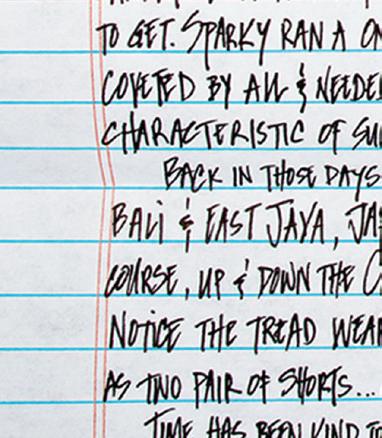 TO GET. SPARKY RAN A
COVETED BY ALL & NEEDED
CHARACTERISTIC OF
BACK IN THOSE DAYS
BALI & EAST JAVA,
COURSE, UP & DOWN THE
NOTICE THE TREAD WEAR
AS TWO PAIR OF SHORTS...
TIME HAS BEEN KIND TO